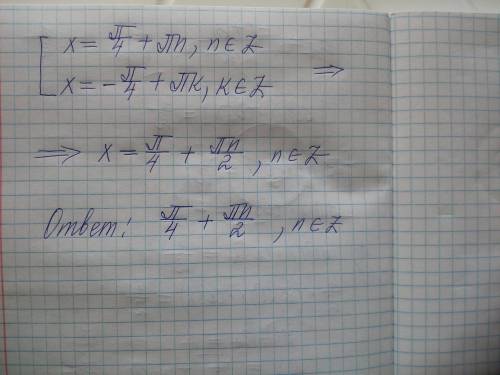 [ x = π/4 + πn, n ∈ Z
x = -π/4 + πk, k ∈ Z ⇒
⇒ x = π/4 + πn/2, n ∈ Z
Ответ: π/4 + πn/2, n ∈ Z